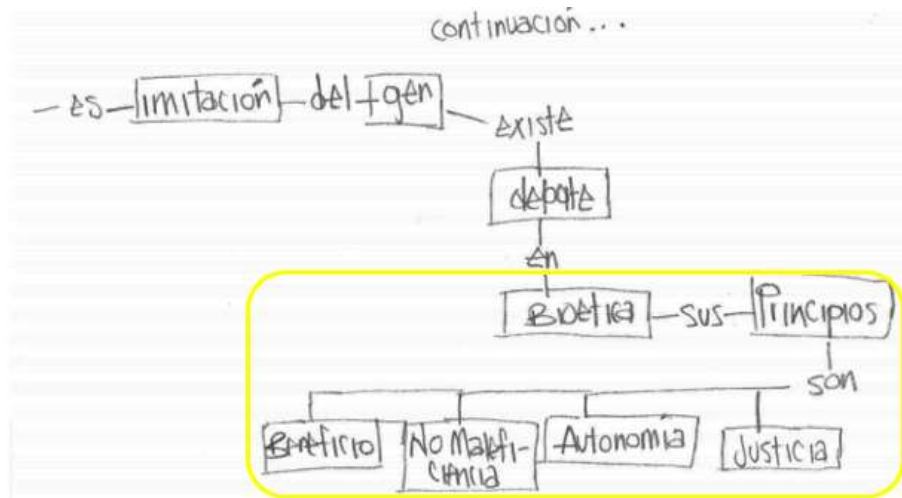 continuación...
es limitación del gen
existe
debate
en
Bioética sus Principios
son
Beneficio No Malefi- Autonomía Justicia
ciencia